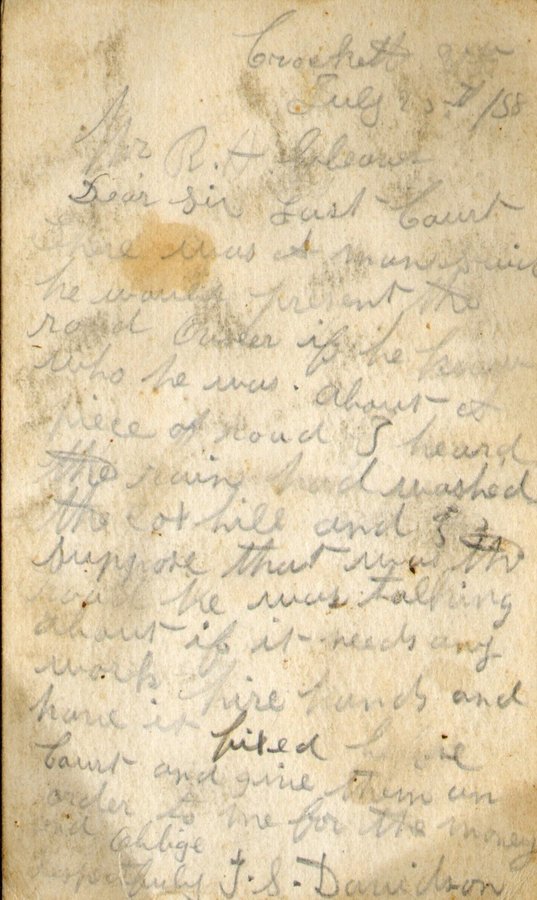 Crockett
July 25th /88
Mr R. H.
Dear Sir Last Court
there was a man said
he would present the
road Oveer if he knew
who he was. About a
piece of road I heard
the rain had washed
the Cox hill and I
suppose that was the
road he was talking
about if it needs any
work hire hands and
have it fixed before
Court and give them an
order to me for the money
and Oblige
Respectfully J. S. Davidson